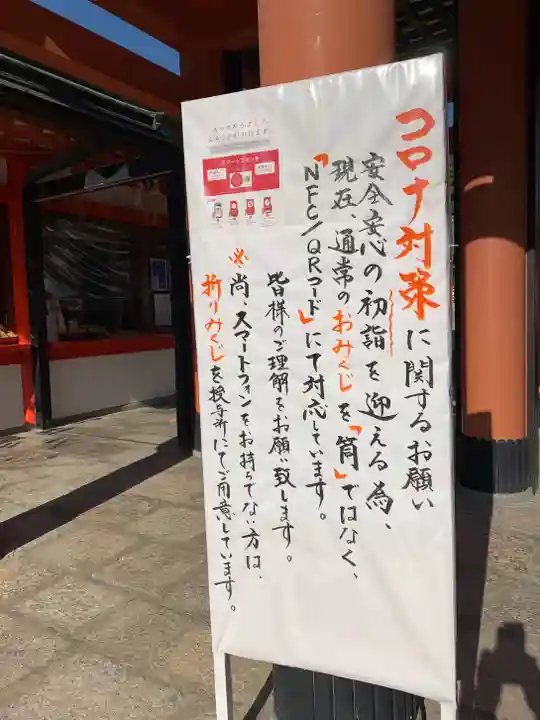 コロナ対策に関するお願い
安全安心の初詣を迎える為、
現在、通常のおみくじを「筒」ではなく、
「NFC/QRコード」にて対応しています。
皆様のご理解をお願い致します。
※尚、スマートフォンをお持ちでない方は、
折りみくじを授与所にてご用意しています。